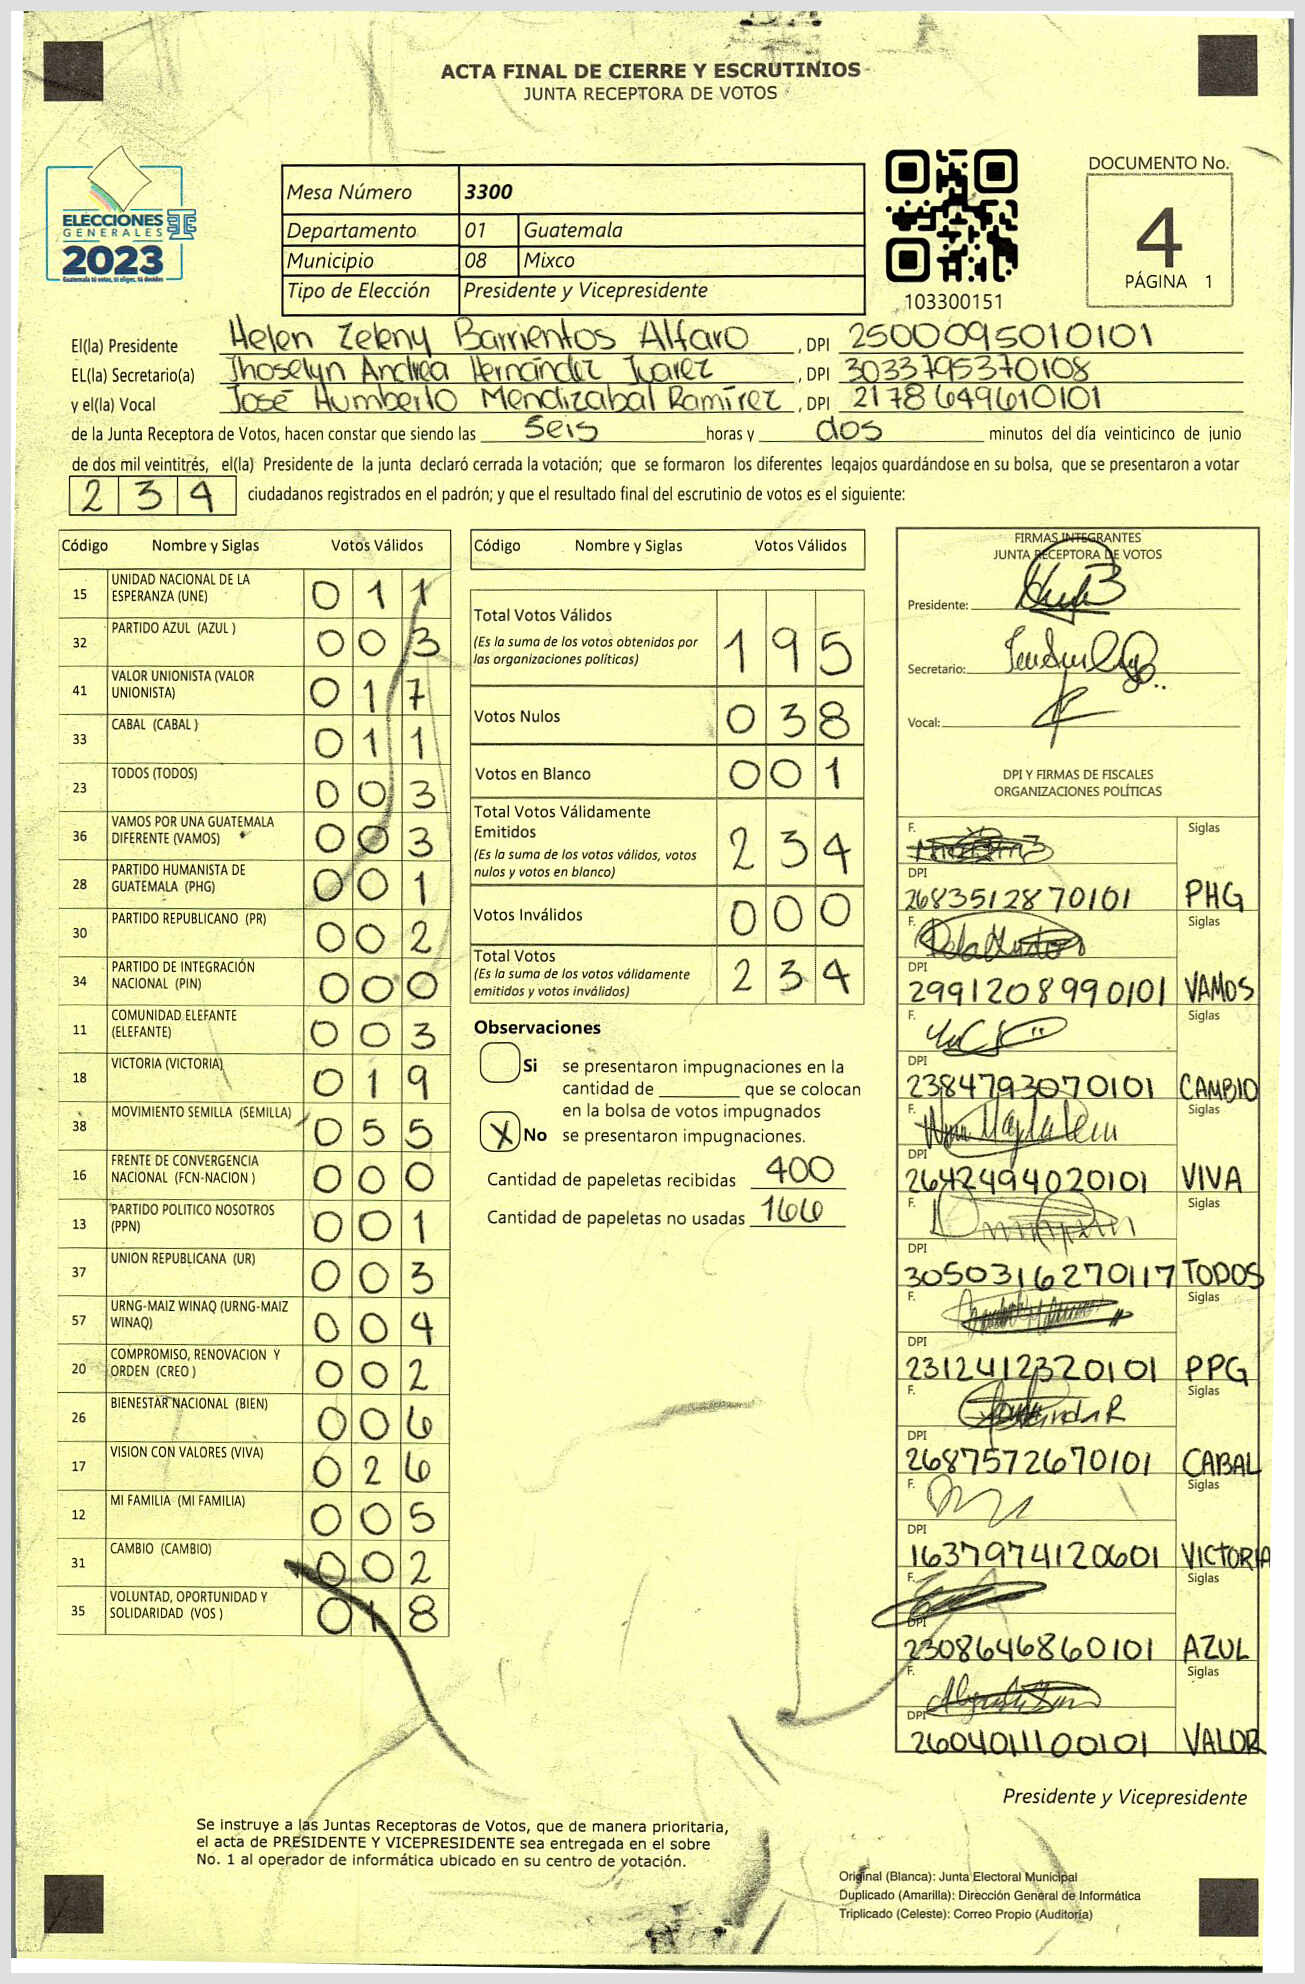 ACTA FINAL DE CIERRE Y ESCRUTINIOS
JUNTA RECEPTORA DE VOTOS
ELECCIONES
GENERALES
2023
Guatemala tú votas, tú eliges, tú decides
Mesa Número 3300
Departamento 01 Guatemala
Municipio 08 Mixco
Tipo de Elección Presidente y Vicepresidente
103300151
DOCUMENTO No.
4
PÁGINA 1
El(la) Presidente Helen Zeleny Barrientos Alfaro, DPI 2500095010101
EL(la) Secretario(a) Jhoselyn Andrea Hernández Juarez, DPI 3033795370108
y el(la) Vocal José Humberto Mendizabal Ramírez, DPI 2178649610101
de la Junta Receptora de Votos, hacen constar que siendo las seis horas y dos minutos del día veinticinco de junio
de dos mil veintitrés, el(la) Presidente de la junta declaró cerrada la votación; que se formaron los diferentes legajos guardándose en su bolsa, que se presentaron a votar
234 ciudadanos registrados en el padrón; y que el resultado final del escrutinio de votos es el siguiente:
Código Nombre y Siglas Votos Válidos
15 UNIDAD NACIONAL DE LA ESPERANZA (UNE) 011
32 PARTIDO AZUL (AZUL ) 003
41 VALOR UNIONISTA (VALOR UNIONISTA) 017
33 CABAL (CABAL ) 011
23 TODOS (TODOS) 003
36 VAMOS POR UNA GUATEMALA DIFERENTE (VAMOS) 003
28 PARTIDO HUMANISTA DE GUATEMALA (PHG) 001
30 PARTIDO REPUBLICANO (PR) 002
34 PARTIDO DE INTEGRACIÓN NACIONAL (PIN) 000
11 COMUNIDAD ELEFANTE (ELEFANTE) 003
18 VICTORIA (VICTORIA) 019
38 MOVIMIENTO SEMILLA (SEMILLA) 055
16 FRENTE DE CONVERGENCIA NACIONAL (FCN-NACION ) 000
13 PARTIDO POLITICO NOSOTROS (PPN) 001
37 UNION REPUBLICANA (UR) 003
57 URNG-MAIZ WINAQ (URNG-MAIZ WINAQ) 004
20 COMPROMISO, RENOVACION Y ORDEN (CREO ) 002
26 BIENESTAR NACIONAL (BIEN) 006
17 VISION CON VALORES (VIVA) 026
12 MI FAMILIA (MI FAMILIA) 005
31 CAMBIO (CAMBIO) 002
35 VOLUNTAD, OPORTUNIDAD Y SOLIDARIDAD (VOS ) 018
Código Nombre y Siglas Votos Válidos
Total Votos Válidos 195
(Es la suma de los votos obtenidos por las organizaciones políticas)
Votos Nulos 038
Votos en Blanco 001
Total Votos Válidamente Emitidos 234
(Es la suma de los votos válidos, votos nulos y votos en blanco)
Votos Inválidos 000
Total Votos 234
(Es la suma de los votos válidamente emitidos y votos inválidos)
Observaciones
Si se presentaron impugnaciones en la
cantidad de ________ que se colocan
en la bolsa de votos impugnados
X No se presentaron impugnaciones.
Cantidad de papeletas recibidas 400
Cantidad de papeletas no usadas 166
FIRMAS INTEGRANTES
JUNTA RECEPTORA DE VOTOS
Presidente:
Secretario:
Vocal:
DPI Y FIRMAS DE FISCALES
ORGANIZACIONES POLÍTICAS
F. Siglas
DPI
2683512870101 PHG
F. Siglas
DPI
2991208990101 VAMOS
F. Siglas
DPI
2384793070101 CAMBIO
F. Siglas
DPI
2642494020101 VIVA
F. Siglas
DPI
3050316270117 TODOS
F. Siglas
DPI
2312412320101 PPG
F. Siglas
DPI
2687572670101 CABAL
F. Siglas
DPI
1637974120601 VICTORIA
F. Siglas
DPI
2308646860101 AZUL
F. Siglas
DPI
2604011100101 VALOR
Presidente y Vicepresidente
Se instruye a las Juntas Receptoras de Votos, que de manera prioritaria,
el acta de PRESIDENTE Y VICEPRESIDENTE sea entregada en el sobre
No. 1 al operador de informática ubicado en su centro de votación.
Original (Blanca): Junta Electoral Municipal
Duplicado (Amarilla): Dirección General de Informática
Triplicado (Celeste): Correo Propio (Auditoría)